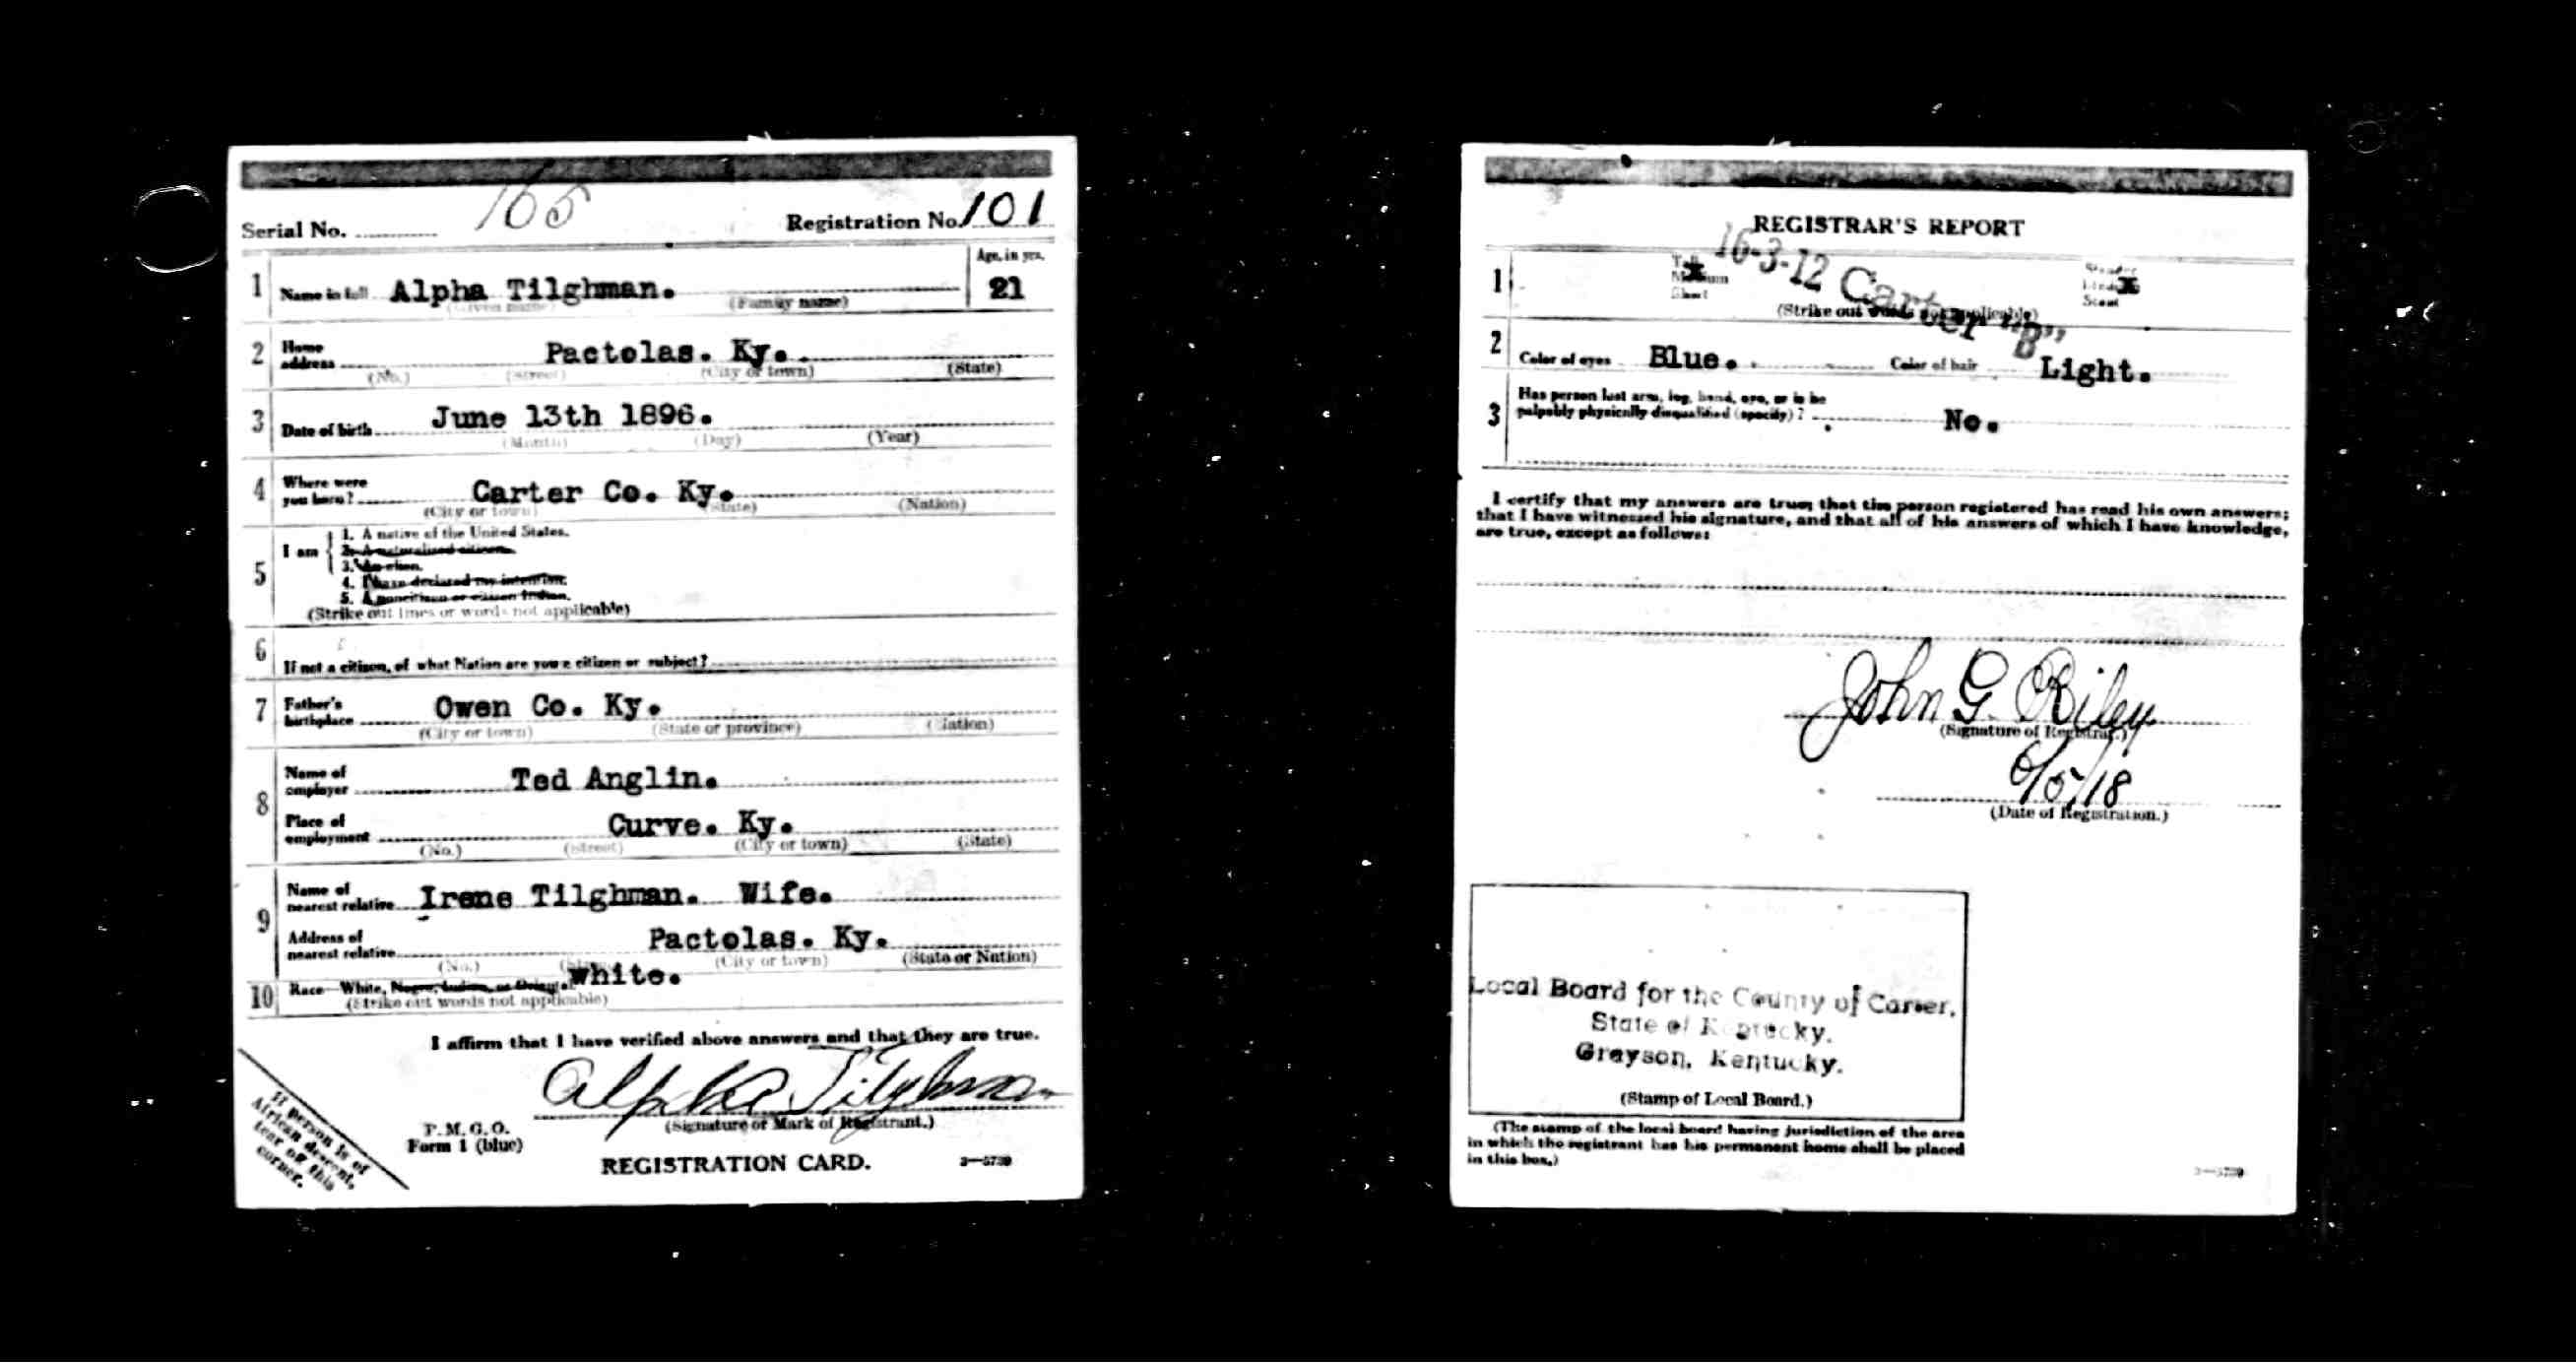 165
Serial No. Registration No. 101
1 Name in full Alpha Tilghman. Age, in yrs. 21
(Given name) (Family name)
2 Home address Pactolas. Ky.
(No.) (Street) (City or town) (State)
3 Date of birth June 13th 1896.
(Month) (Day) (Year)
4 Where were you born? Carter Co. Ky.
(City or town) (State) (Nation)
5 I am
1. A native of the United States.
2. A naturalized citizen.
3. An alien.
4. I have declared my intention.
5. A noncitizen or citizen Indian.
(Strike out lines or words not applicable)
6 If not a citizen, of what Nation are you a citizen or subject?
7 Father's birthplace Owen Co. Ky.
(City or town) (State or province) (Nation)
8 Name of employer Ted Anglin.
Place of employment Curve. Ky.
(No.) (Street) (City or town) (State)
9 Name of nearest relative Irene Tilghman. Wife.
Address of nearest relative Pactolas. Ky.
(No.) (City or town) (State or Nation)
10 Race—White, Negro, Indian, or Oriental White.
(Strike out words not applicable)
I affirm that I have verified above answers and that they are true.
Alpha Tilghman
(Signature or Mark of Registrant.)
P. M. G. O.
Form 1 (blue)
REGISTRATION CARD. 3—5739
If person is of
African descent,
tear off this
corner.
REGISTRAR'S REPORT
16-3-12 Carter "B"
1 Tall Slender
Medium Medium
Short Stout
(Strike out words not applicable)
2 Color of eyes Blue. Color of hair Light.
3 Has person lost arm, leg, hand, eye, or is he
palpably physically disqualified (specify)? No.
I certify that my answers are true; that the person registered has read his own answers;
that I have witnessed his signature, and that all of his answers of which I have knowledge,
are true, except as follows:
John G. Riley
(Signature of Registrar.)
6/5/18
(Date of Registration.)
Local Board for the County of Carter,
State of Kentucky.
Grayson, Kentucky.
(Stamp of Local Board.)
(The stamp of the local board having jurisdiction of the area
in which the registrant has his permanent home shall be placed
in this box.)
3—5739